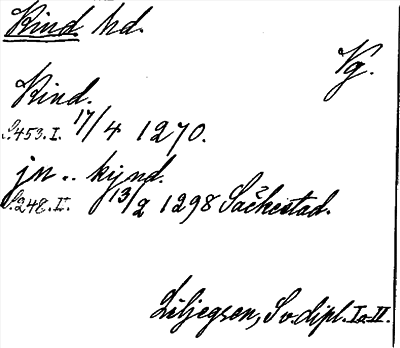 Kind. hd.
Vg.
Kind.
S.453.I. 17/4 1270.
jn .. kijnd.
S.248.II. 13/2 1298 Sačkestad.
Liljegren, Sv.dipl. I o. II.